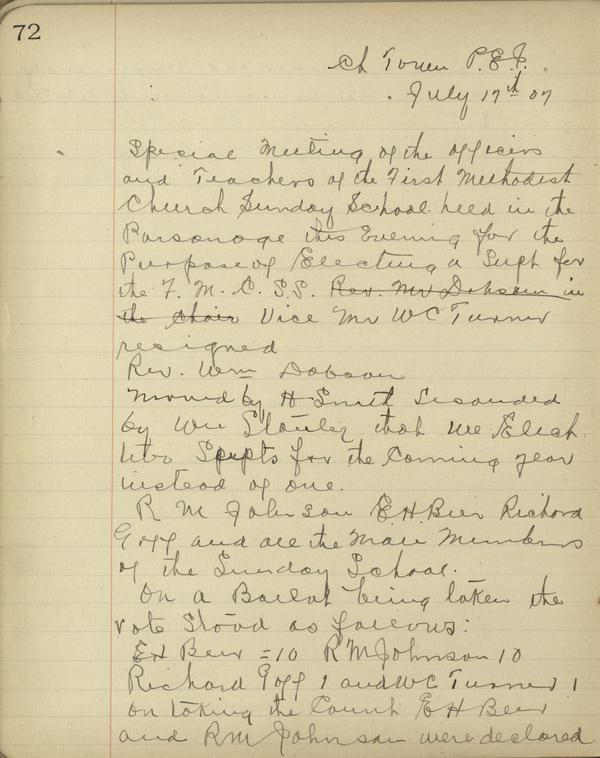 72
Ch Town P.E.I.
July 17th 07
Special Meeting of the officers
and Teachers of the First Methodist
Church Sunday School held in the
Parsonage this Evening for the
Purpose of Electing a Supt for
the F. M. C. S.S. Rev. Mr Dobson in
the chair Vice Mr WC Turner
resigned
Rev. Wm Dobson
Moved by H Smith Seconded
by Wm Stanley that we Elect
two Supts for the Coming year
instead of one.
R M Johnson E.H. Beer Richard
Goff and all the Male Members
of the Sunday School.
On a Ballot being taken the
vote Stood as follows:
EH Beer = 10 R M Johnson 10
Richard Goff 1 and WC Turner 1
On taking the Count E H Beer
and RM Johnson were declared